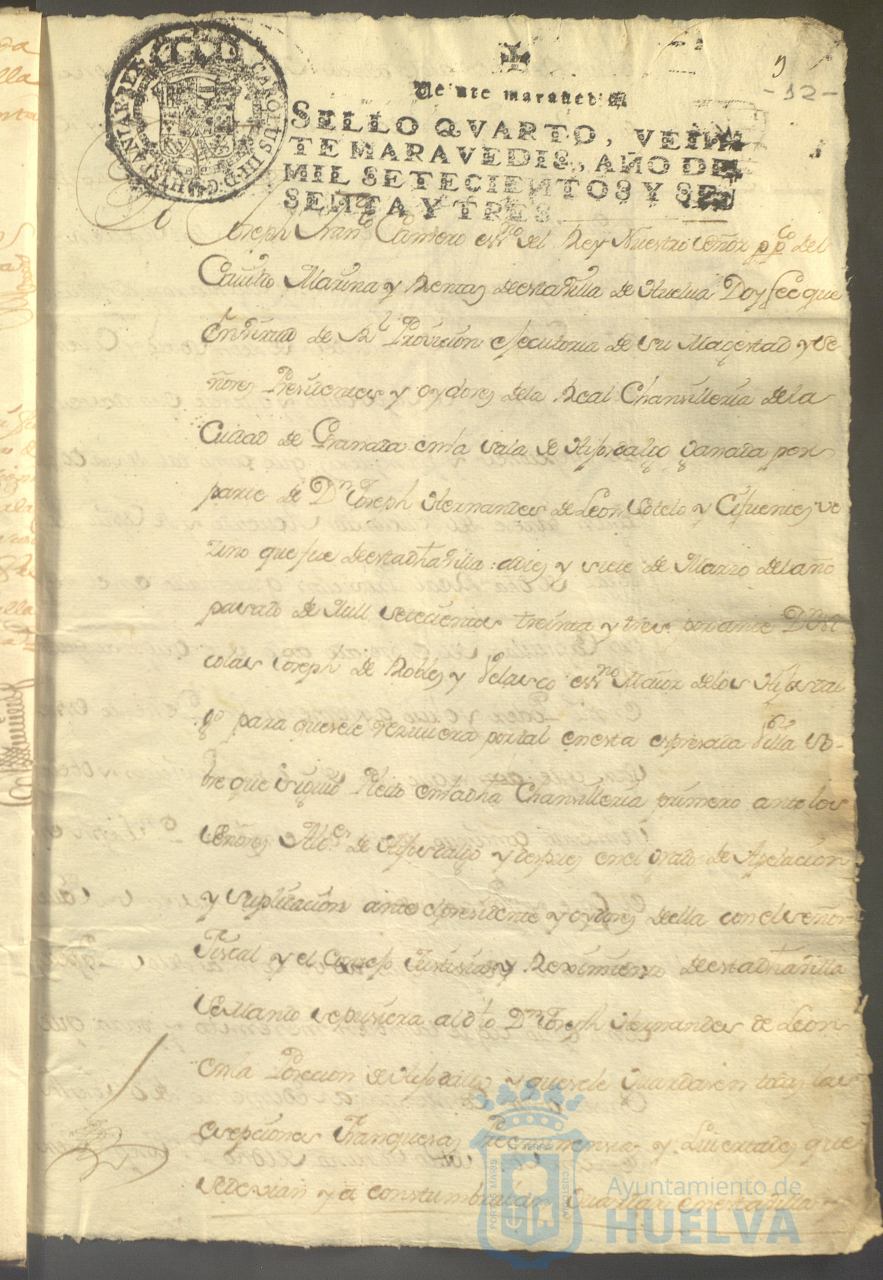 CAROLUS III D. G. HISPANIAR. REX
9
-12-
Veinte maravedis
SELLO QVARTO, VEIN
TE MARAVEDIS, AÑO DE
MIL SETECIENTOS Y SE
SENTA Y TRES.
Joseph Fran.co Camero ess.no del Rey Nuestro Señor pp.co del
Cauildo Marina y Rentas de esta Villa de Huelua Doy fee que
en Virtud de R.l Prouicion executoria de su Magestad y Se
ñores Presidentes y oydores de la Real Chansilleria de la
Ciudad de Granada en la sala de Hijosdalgo ganada por
parte de D.n Joseph Hernandes de Leon Sotelo y Cifuentes ve
zino que fue de esta dha Villa: a dies y siete de Marzo del año
pasado de Mill setecientos treinta y tres por ante D.n Ni
colas Joseph de Robles y Velasco ess.no Maior de los Hijosdal
go para que se le reciuiera por tal en esta espresada Villa so-
bre que siguio Pleito en la dha Chansilleria primero ante los
Señores Alc.es de Hijosdalgo y despues en el grado de Apelacion
y suplicacion ante el presidente y oydores de ella con el Señor
Fiscal y el Consejo Justisia y Reximiento de esta dha Villa
se Mando se pusiera al dho D.n Joseph Hernandes de Leon
en la Posecion de Hijodalgo y que se le Guardasen todas las
esepciones Franquesas Preeminensias y Liuertades que
se devian y a constumbrauan Guardar en esta Villa
PORTUS MARIS
CUSTODIA
Ayuntamiento de
HUELVA